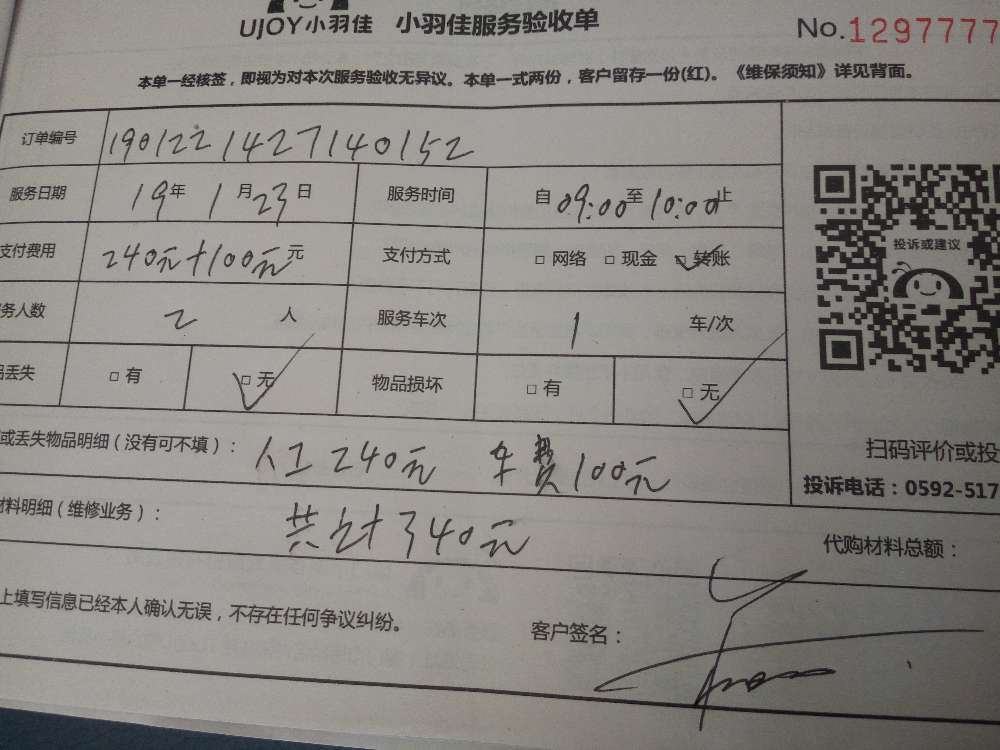 UJOY小羽佳 小羽佳服务验收单 No.1297777
本单一经核签，即视为对本次服务验收无异议。本单一式两份，客户留存一份(红)。《维保须知》详见背面。
订单编号 1901221427140152
服务日期 19年1月23日 服务时间 自09:00至10:00止
支付费用 240元+100元元 支付方式 □网络 □现金 □转账
务人数 2人 服务车次 1车/次
品丢失 □有 □无 物品损坏 □有 □无
投诉或建议
或丢失物品明细（没有可不填）： 人工240元 车费100元
扫码评价或投
投诉电话：0592-517
材料明细（维修业务）： 共计340元
代购材料总额：
上填写信息已经本人确认无误，不存在任何争议纠纷。
客户签名：